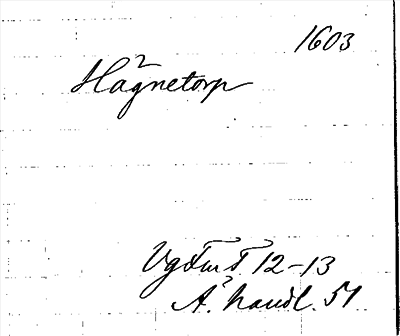 1603
Hagnetorp
VgFmT 12-13
A. handl. 51